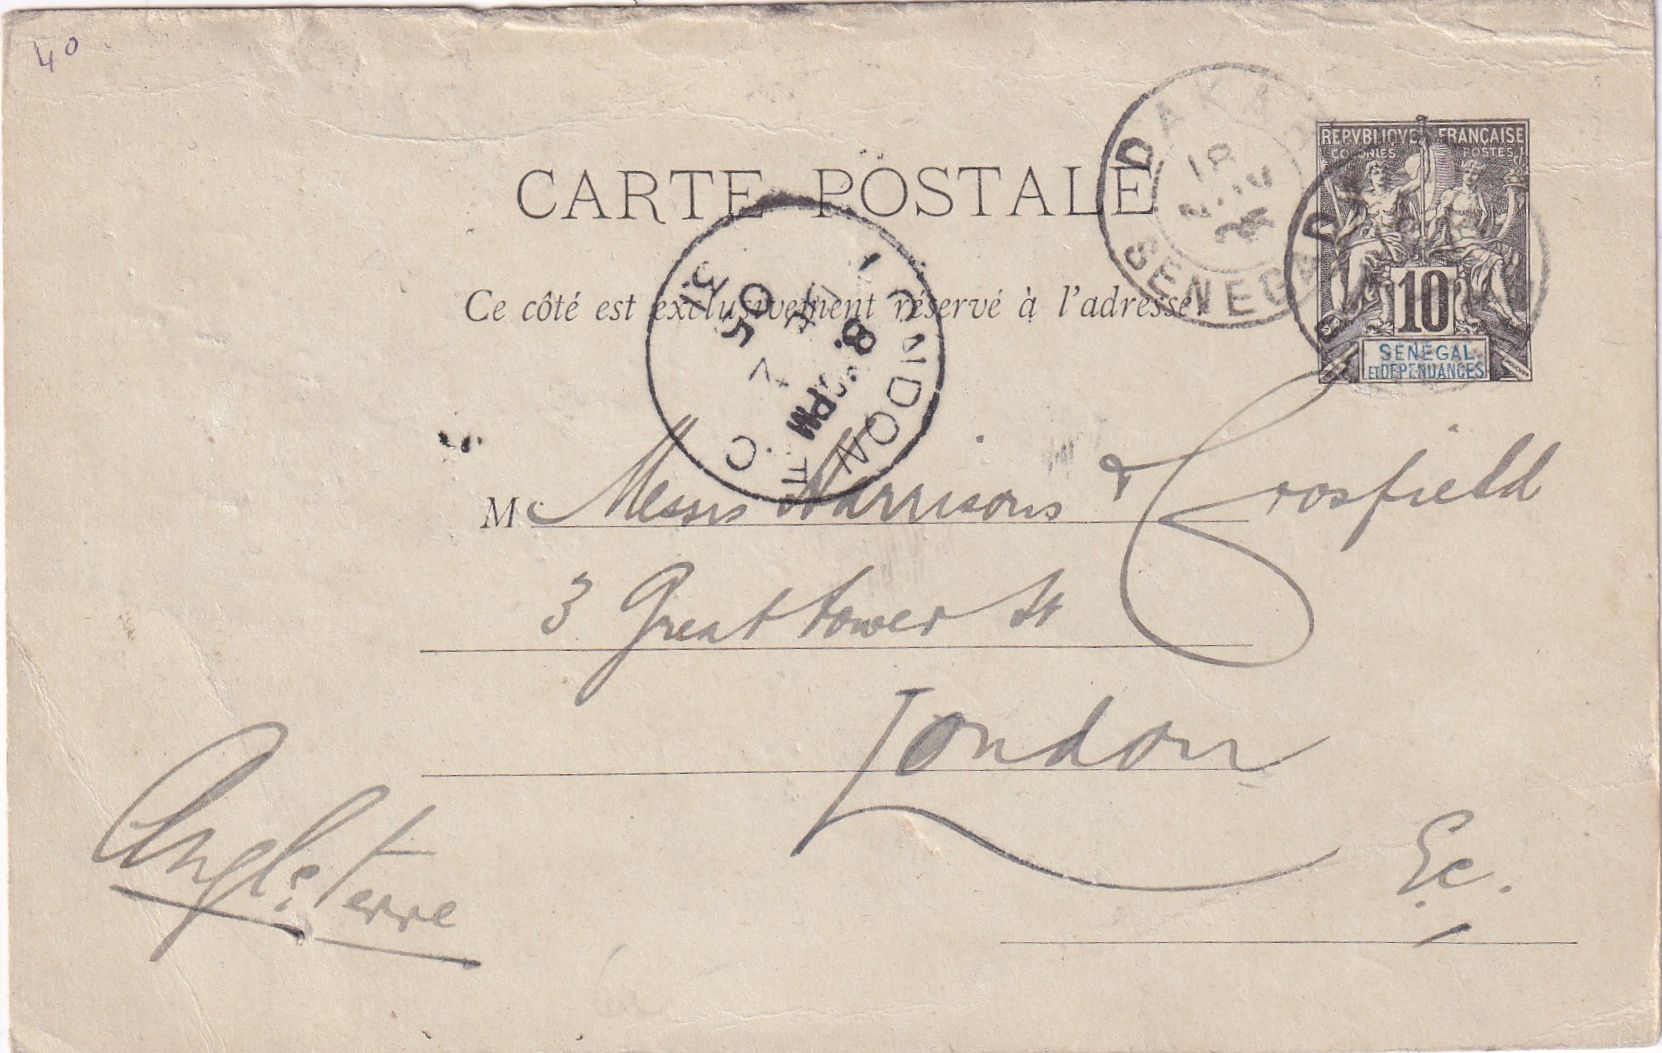 40
CARTE POSTALE
Ce côté est exclusivement réservé à l'adresse
DAKAR
18
SENEGAL
REPVBLIQVE FRANÇAISE
COLONIES POSTES
10
SENEGAL
ET DÉPENDANCES
LONDON E C
8 PM
05
M Messrs Harrisons & Crosfield
3 Great tower St
London
E.C.
Angleterre